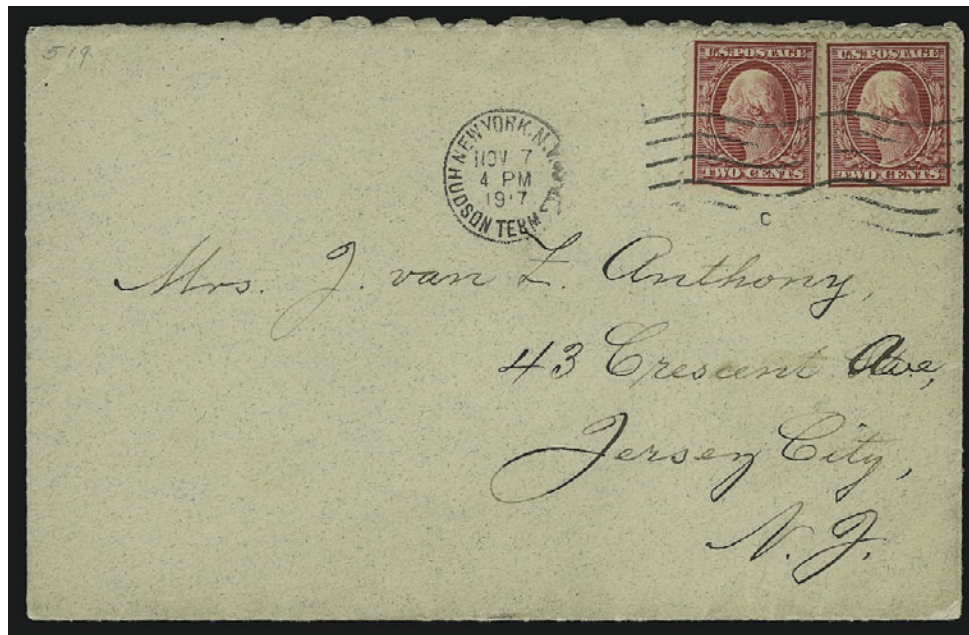 519
U.S. POSTAGE
TWO CENTS
U.S. POSTAGE
TWO CENTS
NEW YORK, N.Y.
NOV 7
4 PM
1917
HUDSON TERM
C
Mrs. J. van Z. Anthony,
43 Crescent Ave,
Jersey City,
N. J.